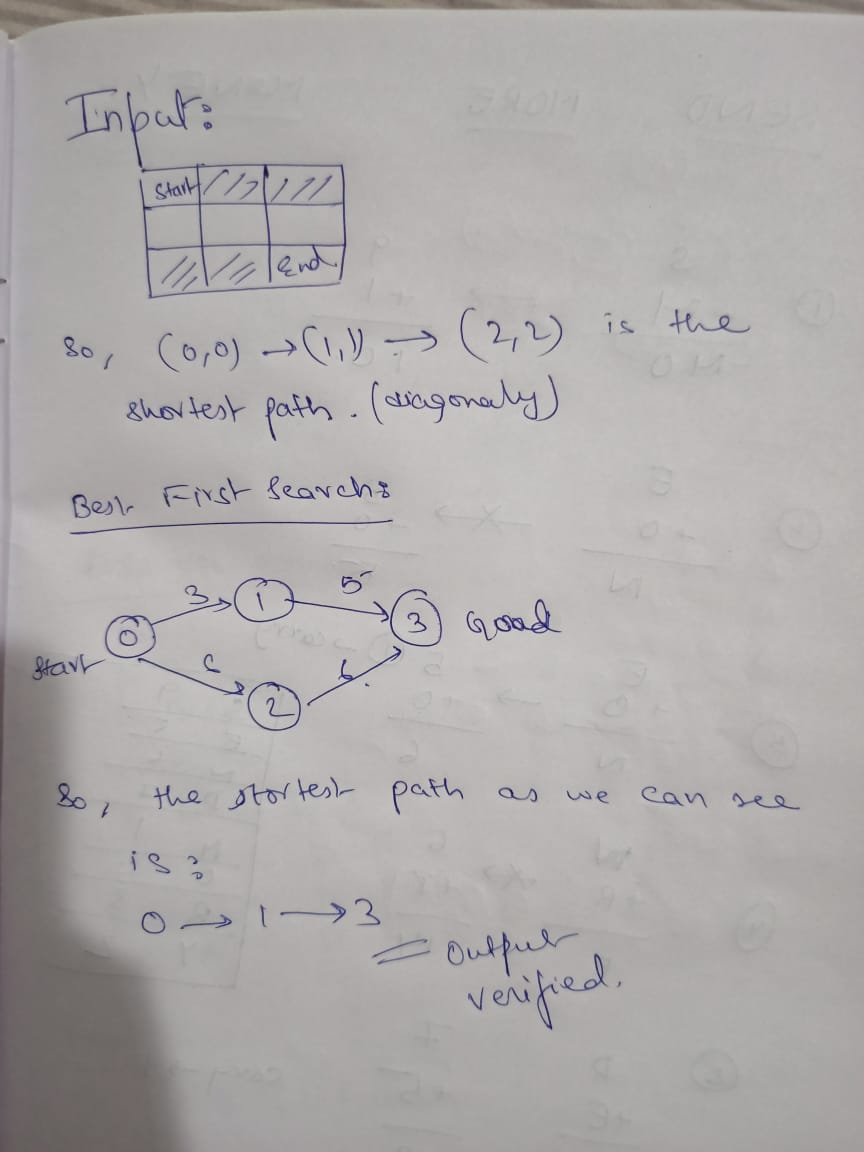 Input:
Start
End
So, (0,0) → (1,1) → (2,2) is the
shortest path. (diagonaly)
Best First Search:
3 1 5
0 3 Goad
Start
6
2
So, the stortest path as we can see
is:
0 → 1 → 3
= Output
verified.